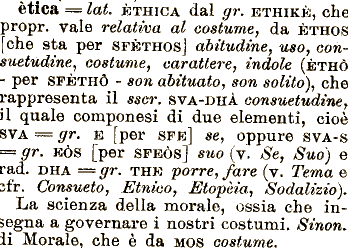 ètica = lat. ÈTHICA dal gr. ETHIKÈ, che
propr. vale relativa al costume, da ÈTHOS
[che sta per SFÈTHOS] abitudine, uso, con-
suetudine, costume, carattere, indole (ÈTHÔ
- per SFÈTHÔ - son abituato, son solito), che
rappresenta il sscr. SVA-DHÀ consuetudine,
il quale componesi di due elementi, cioè
SVA = gr. E [per SFE] se, oppure SVA-S
= gr. EÒS [per SFEÒS] suo (v. Se, Suo) e
rad. DHA = gr. THE porre, fare (v. Tema e
cfr. Consueto, Etnico, Etopèia, Sodalizio).
La scienza della morale, ossia che in-
segna a governare i nostri costumi. Sinon.
di Morale, che è da MOS costume.